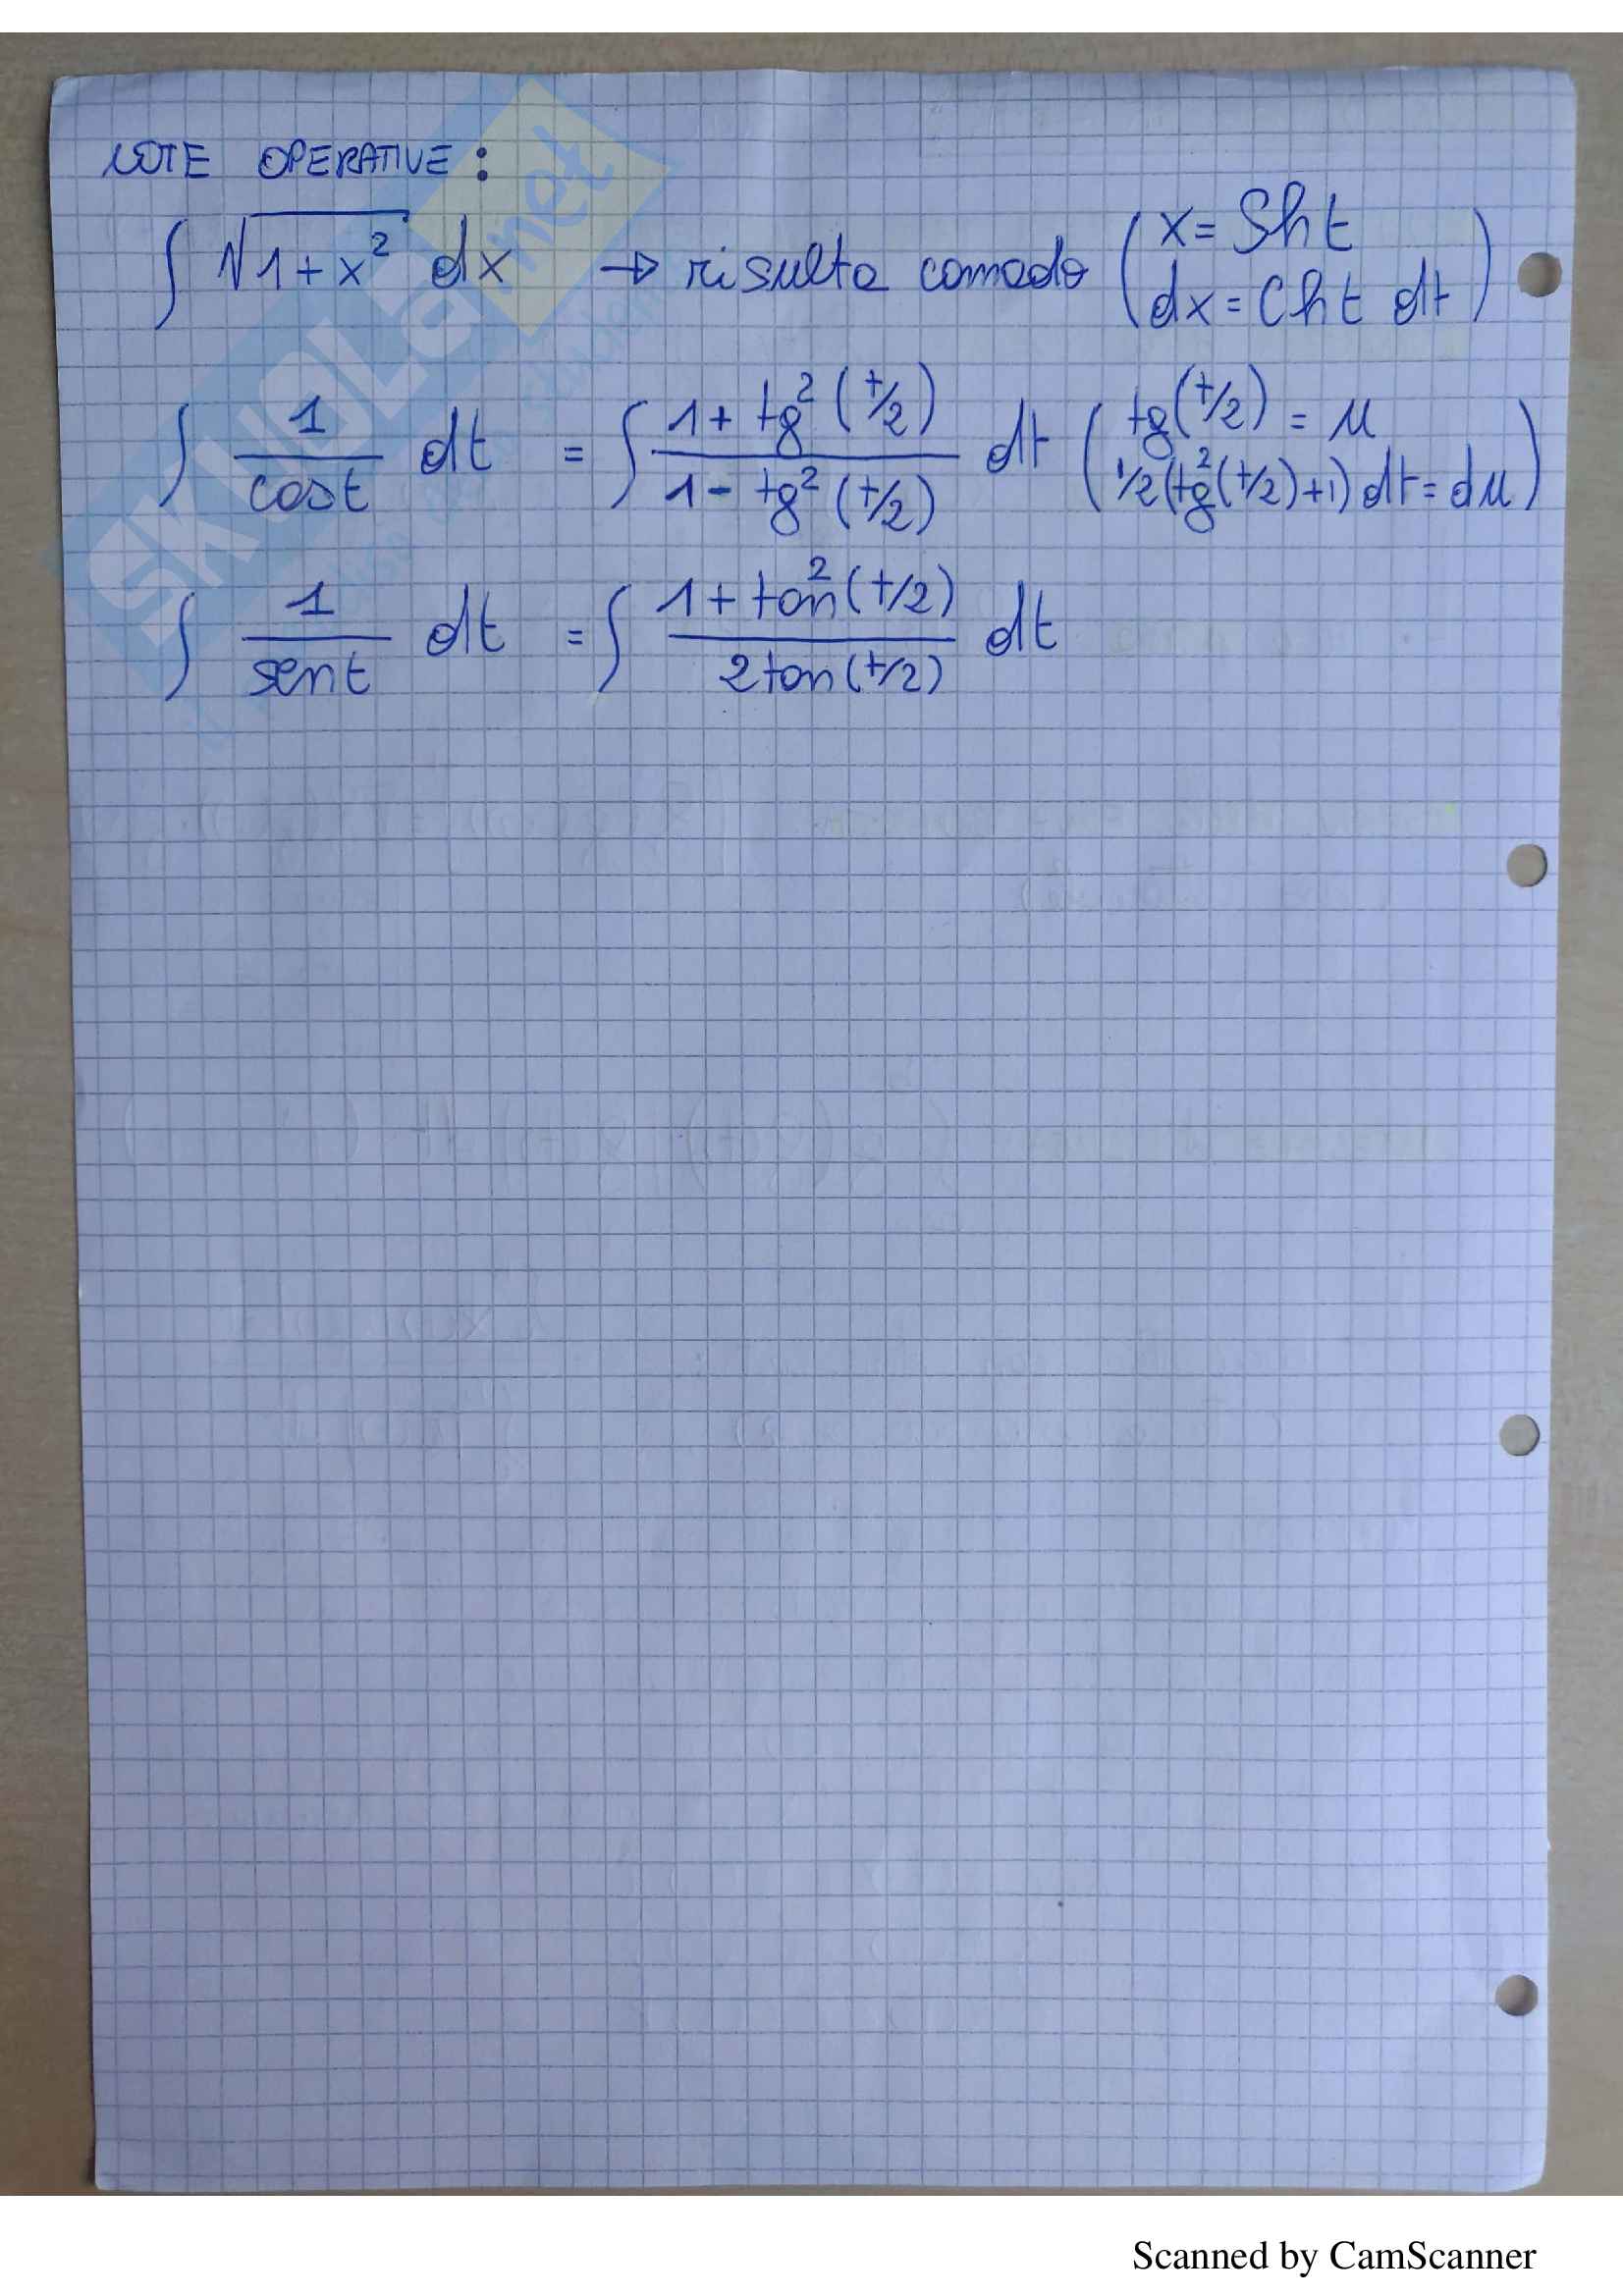 NOTE OPERATIVE:
∫ √(1+x²) dx → risulta comodo (x = Sh t
dx = Ch t dt)
∫ 1/cost dt = ∫ (1 + tg²(t/2))/(1 - tg²(t/2)) dt (tg(t/2) = u
1/2(tg²(t/2)+1) dt = du)
∫ 1/sent dt = ∫ (1 + tan²(t/2))/(2tan(t/2)) dt
SKUOLA.net
Scanned by CamScanner